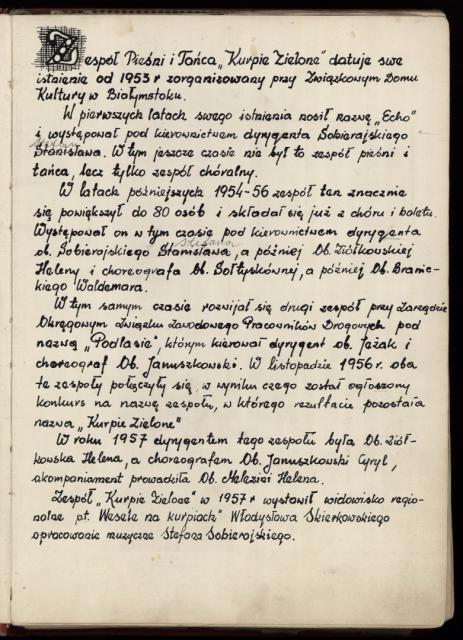 Zespół Pieśni i Tańca „Kurpie Zielone" datuje swe
istnienie od 1953 r zorganizowany przy Związkowym Domu
Kultury w Białymstoku.
W pierwszych latach swego istnienia nosił nazwę „Echo"
i występował pod kierownictwem dyrygenta Sobierajskiego
Stanisława. W tym jeszcze czasie nie był to zespół pieśni i
tańca, lecz tylko zespół chóralny.
W latach późniejszych 1954-56 zespół ten znacznie
się powiększył do 80 osób i składał się już z chóru i baletu.
Występował on w tym czasie pod kierownictwem dyrygenta
Stefana
ob. Sobierajskiego Stanisława, a później Ob. Ziółkowskiej
Heleny i choreografa Ob. Sołtyskównej, a później Ob. Branic-
kiego Waldemara.
W tym samym czasie rozwijał się drugi zespół przy Zarządzie
Okręgowym Związku Zawodowego Pracowników Drogowych pod
nazwą „Podlasie", którym kierował dyrygent ob. Jeżak i
choreograf Ob. Januszkowski. W listopadzie 1956 r. oba
te zespoły połączyły się, w wyniku czego został ogłoszony
konkurs na nazwę zespołu, w którego rezultacie pozostała
nazwa „Kurpie Zielone"
W roku 1957 dyrygentem tego zespołu była Ob. Ziół-
kowska Helena, a choreografem Ob. Januszkowski Cyryl,
akompaniament prowadziła Ob. Helena.
Zespół „Kurpie Zielone" w 1957 r wystawił widowisko regio-
nalne pt. Wesele na kurpiach" Władysława Skierkowskiego
opracowanie muzyczne Stefana Sobierajskiego.